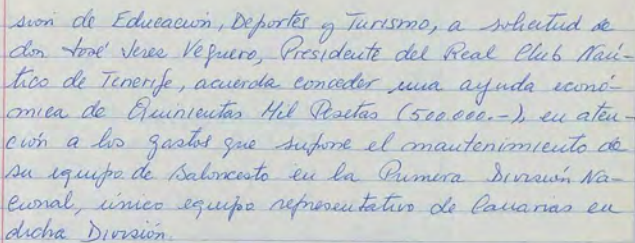 sión de Educación, Deportes y Turismo, a solicitud de
don José Jerez Veguero, Presidente del Real Club Naú-
tico de Tenerife, acuerda conceder una ayuda econó-
mica de Quinientas Mil Pesetas (500.000.-), en aten-
ción a los gastos que supone el mantenimiento de
su equipo de baloncesto en la Primera División Na-
cional, único equipo representativo de Canarias en
dicha División.